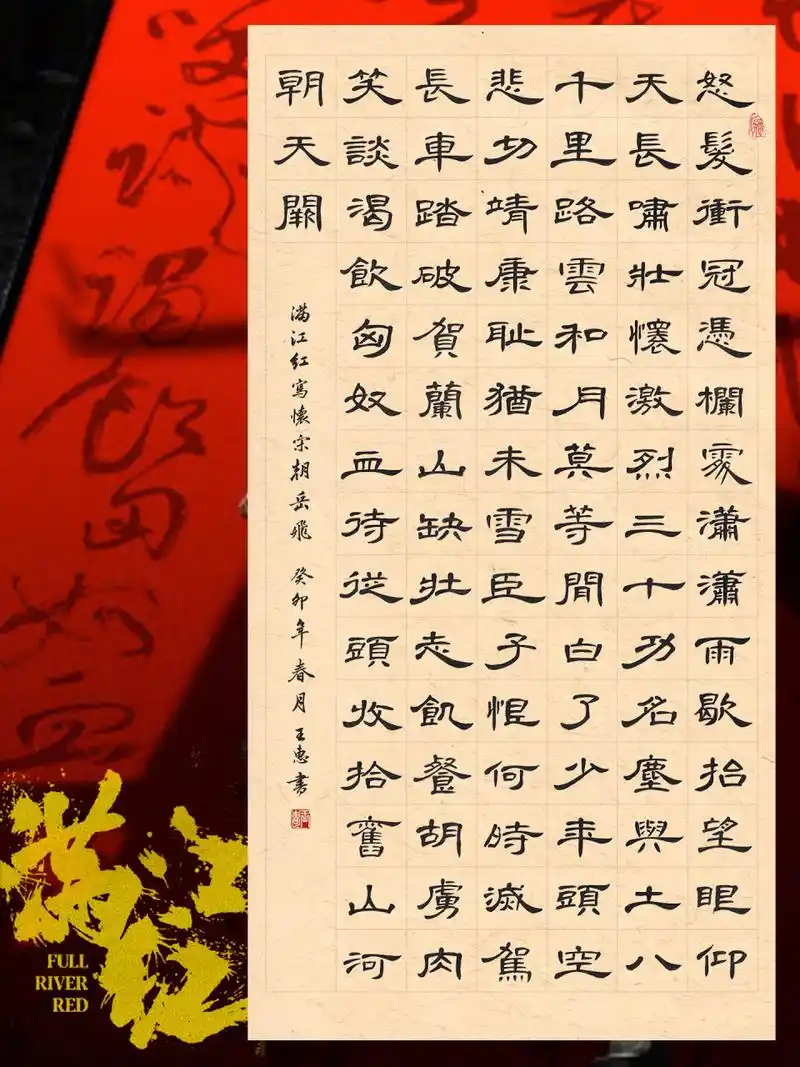 怒髮衝冠憑欄處瀟瀟雨歇抬望眼仰
天長嘯壯懷激烈三十功名塵與土八
千里路雲和月莫等閒白了少年頭空
悲切靖康耻猶未雪臣子恨何時滅駕
長車踏破賀蘭山缺壯志飢餐胡虜肉
笑談渴飲匈奴血待從頭收拾舊山河
朝天闕
滿江紅寫懷宋朝岳飛 癸卯年春月王惠書
满江红
FULL
RIVER
RED